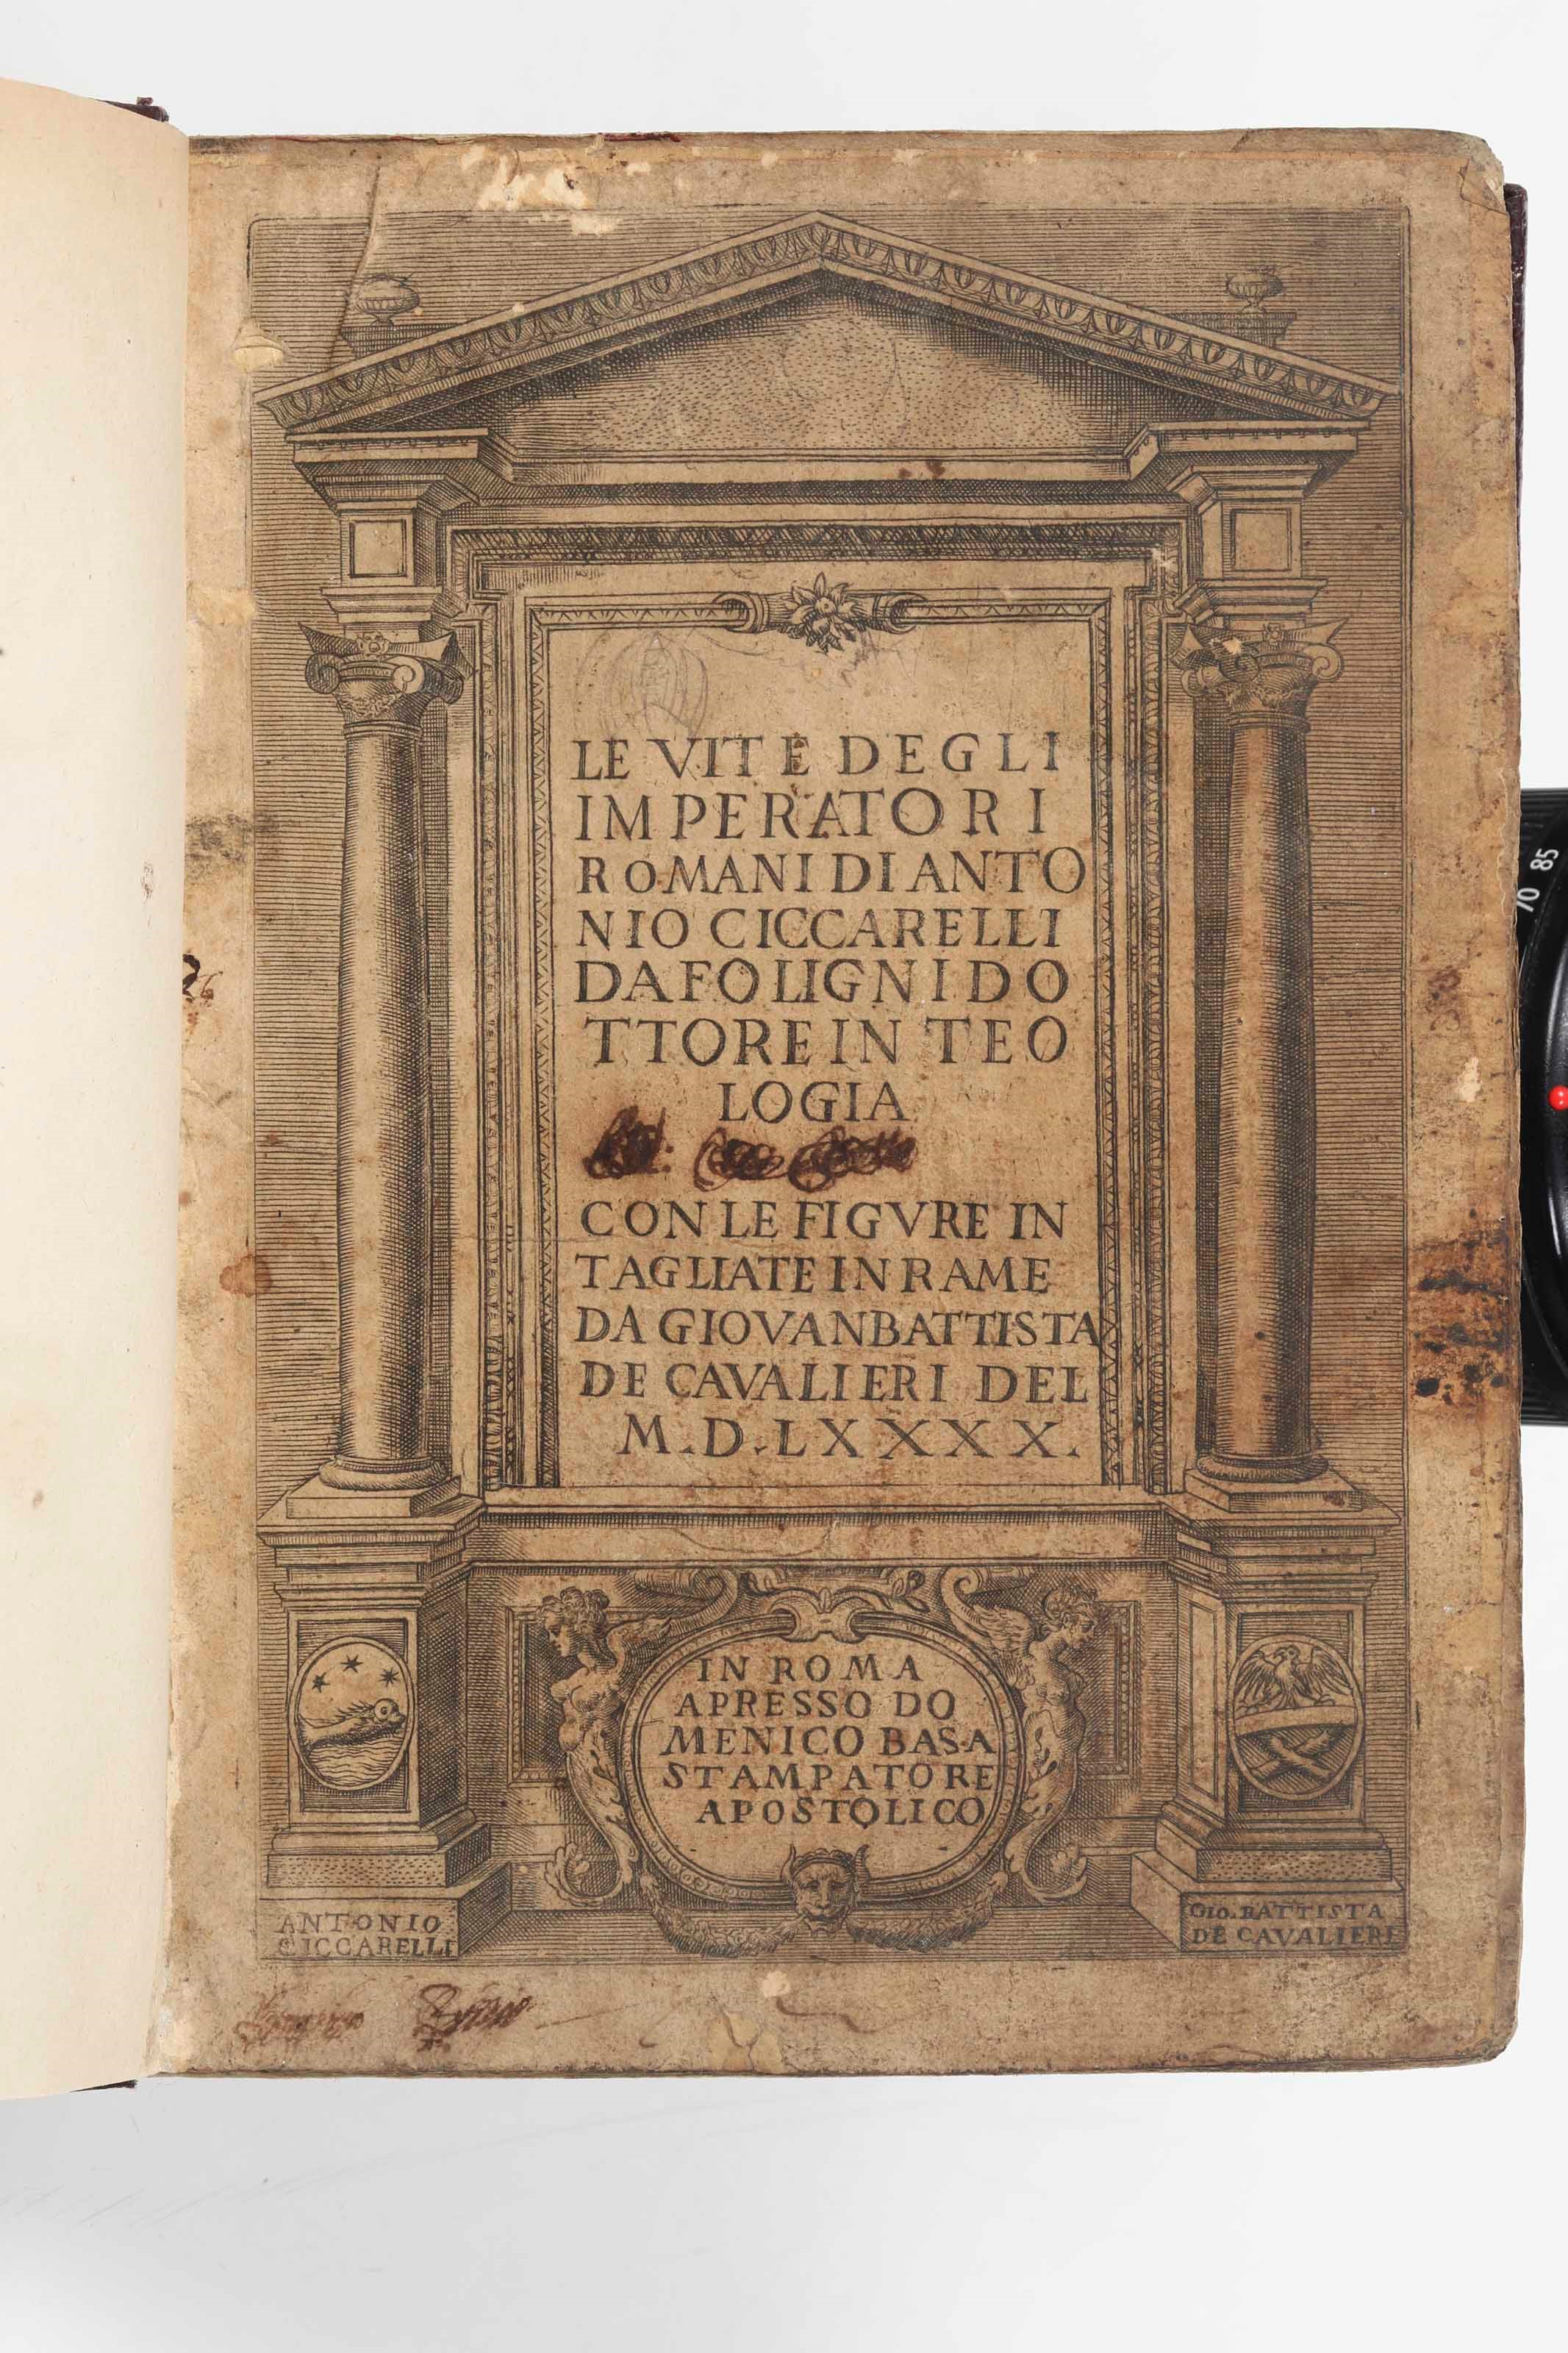 LE VITE DEGLI
IMPERATORI
ROMANI DI ANTO
NIO CICCARELLI
DA FOLIGNI DO
TTORE IN TEO
LOGIA
CON LE FIGVRE IN
TAGLIATE IN RAME
DA GIOVANBATTISTA
DE CAVALIERI DEL
M.D.LXXXX.
IN ROMA
APRESSO DO
MENICO BASA
STAMPATORE
APOSTOLICO
ANTONIO
CICCARELLI
GIO. BATTISTA
DE CAVALIERI
70 85